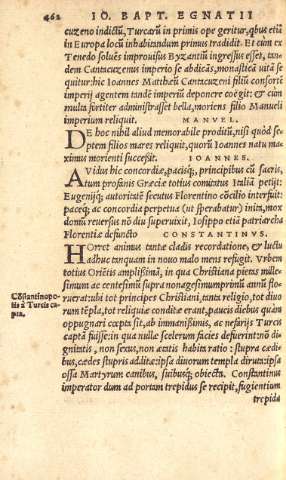 462 IO. BAPT. EGNATII
cuzeno indictũ, Turcarũ in primis ope geritur, q̃bus etiã
in Europa locũ inhabitandum primus tradidit. Et cùm ex
Tenedo soluẽs improuisus Byzantiũ ingressus esset, tan-
dem Cantacuzenus imperio se abdicās, monasticā uitã se
quitur: hic Ioannes Matthæũ Cantacuzeni filiũ consortẽ
imperij agentem tandẽ imperiũ deponere coëgit: & cum
multa fortiter administrasset bella, moriens filio Manueli
imperium reliquit. MANVEL.
De hoc nihil aliud memorabile proditũ, nisi quòd se-
ptem filios mares reliquit, quorũ Ioannes natu ma-
ximus morienti successit. IOANNES.
Auidus hic concordiæ, pacisq́;, principibus cũ sacris,
tum profanis Græciæ totius comitatus Italiã petijt:
Eugenijq́; autoritatẽ secutus Florentino cõcilio interfuit:
paceq́; ac concordia perpetua (ut sperabatur) inita, mox
domũ reuersus nõ diu superuixit, Iosippo etiã patriarcha
Florentiæ defuncto CONSTANTINVS.
Horret animus tantæ cladis recordatione, & luctu
adhuc tanquam in nouo malo mens refugit. Vrbem
totius Oriẽtis amplißimã, in qua Christiana pietas mille-
simum ac centesimũ supra nonagesimumprimũ annũ flo-
ruerat: ubi tot principes Christiani, tanta religio, tot diuo
rum tẽpla, tot reliquiæ conditæ erant, paucis diebus quàm
oppugnari cœpta sit, ab immanißimis, ac nefarijs Turcis
captã fuisse: in qua nullæ scelerum facies defuerint: nõ di-
gnitatis, non sexus, non ætatis habita ratio: stupra cædi-
bus, cædes stupris additæ: ipsa diuorum templa diruta: ipsa
ossa Martyrum canibus, suibusq́; obiecta. Constantinus
imperator dum ad portam trepidus se recipit, fugientium
trepida
Cõstantinopo-
lis à Turcis ca-
pta.